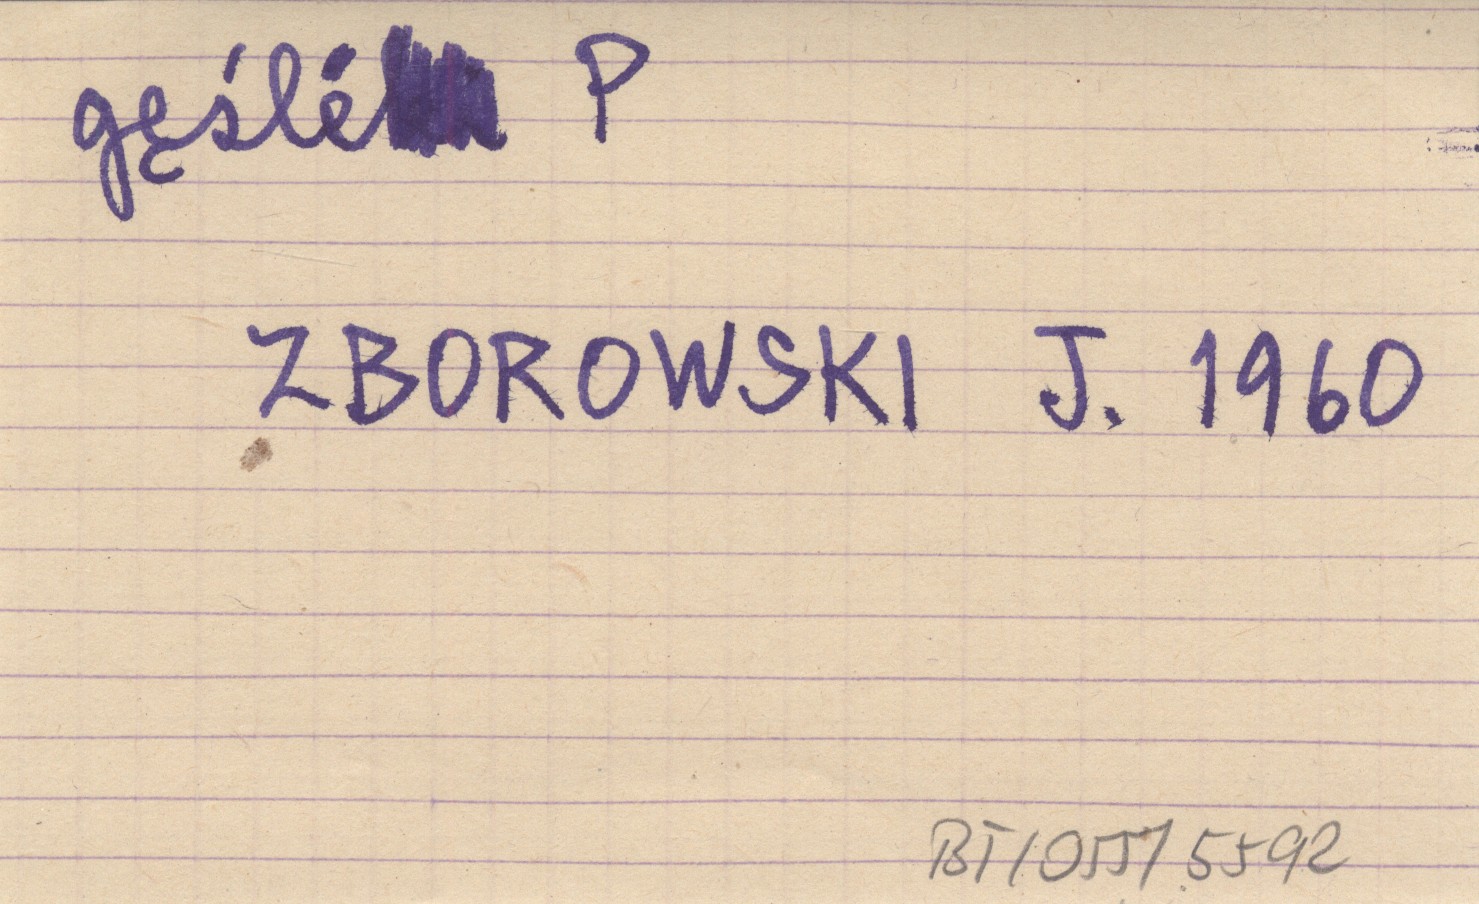 gęślé P
ZBOROWSKI J. 1960
BT/055/5592